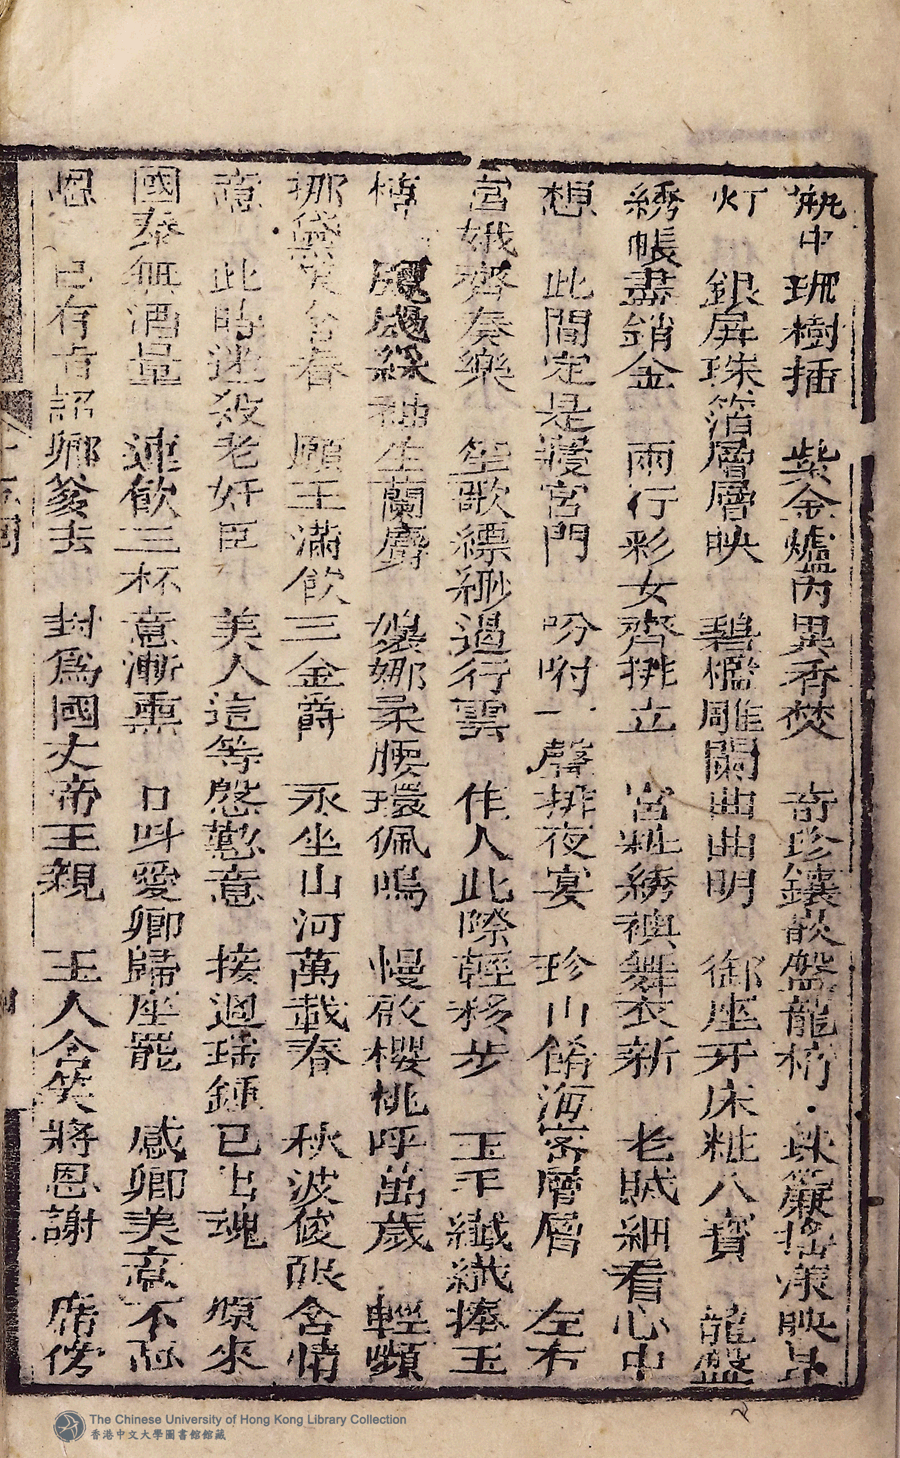 瓶中珊樹插 紫金爐內異香焚 奇珍鑲嵌盤龍椅 珠簾搖漾映晶
灯 銀屏珠箔層層映 碧檻雕闌曲曲明 御座牙床粧八寶 龍盤
綉帳盡銷金 兩行彩女齊排立 宮粧綉襖舞衣新 老賊細看心中
想 此間定是寢宮門 吩咐一聲排夜宴 珍山餚海密層層 左右
宮娥齊奏樂 笙歌縹緲遏行雲 作人此際輕移步 玉手纖纖捧玉
樽 飄綵袖生蘭麝 嬝娜柔腰環佩鳴 慢啟櫻桃呼萬歲 輕嚬
挪黛笑含春 願王滿飲三金爵 永坐山河萬載春 秋波俊眼含情
意 此時迷殺老奸臣 美人這等慇懃意 接過瑤鍾已出魂 煩來
國泰無酒量 連飲三杯意漸熏 口呌愛卿歸座罷 感卿美意不忘
恩 已有旨詔卿爹去 封爲國丈帝王親 王人含笑將恩謝 席傍
The Chinese University of Hong Kong Library Collection
香港中文大學圖書館館藏